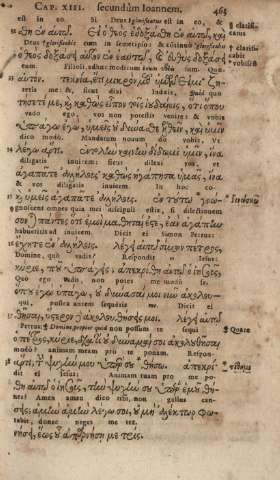 CAP. XIII. secundùm Ioannem. 463
est in eo. Si Deus est in eo, &
θη ἐν αὐτῷ. Εἰ ὁ θεὸς ἐδοξάσθη ἐν αὐτῷ, καὶ
Deus in semetipso: &
ὁ θεὸς δοξάσει αὐτὸν ἐν ἑαυτῷ, καὶ εὐθὺς δοξάσει
eum. Filioli, adhuc modicum sum. Quæ
αὐτόν. τεκνία, ἔτι μικρὸν μεθ' ὑμῶν εἰμι. ζη
retis me: & sicut dixi Iudæis, Quò
τήσετέ με, καὶ καθὼς εἶπον τοῖς ἰουδαίοις, ὅτι ὅπου
vado ego, vos non potestis venire: & vobis
ὑπάγω ἐγὼ, ὑμεῖς οὐ δύνασθε ἐλθεῖν, καὶ ὑμῖν
dico modò. Mandatum nouum do vobis, Vt
λέγω ἄρτι. ἐντολὴν καινὴν δίδωμι ὑμῖν, ἵνα
diligatis inuicem: sicut dilexi vos, vt
ἀγαπᾶτε ἀλλήλους. καθὼς ἠγάπησα ὑμᾶς, ἵνα
& vos diligatis inuicem. In hoc co-
καὶ ὑμεῖς ἀγαπᾶτε ἀλλήλους. ἐν τούτῳ γνώ-
gnoscent omnes quia mei discipuli estis, si dilectionem
σονται πάντες ὅτι ἐμοὶ μαθηταί ἐστε, ἐὰν ἀγάπην
habueritis ad inuicem. Dicit ei Simon Petrus:
ἔχητε ἐν ἀλλήλοις. λέγει αὐτῷ σίμων πέτρος,
Domine, quò vadis? Respondit Iesus:
κύριε, ποῦ ὑπάγεις; ἀπεκρίθη αὐτῷ ὁ ἰησοῦς,
Quò ego vado, non potes me modò se-
ὅπου ὑπάγω, οὐ δύνασαί μοι νῦν ἀκολου-
qui, postea autem sequêris Dicit ei
θῆσαι, ὕστερον δὲ ἀκολουθήσεις μοι. λέγει αὐτῷ
Petrus: quid non possum te sequi
ὁ πέτρος, κύριε, διατί οὐ δύναμαί σοι ἀκολουθῆσαι
modò? animam meam pro te ponam. Respon-
ἄρτι; τὴν ψυχήν μου ὑπὲρ σοῦ θήσω. ἀπεκρί-
dit ei Iesus: Animam tuam pro me po-
θη αὐτῷ ὁ ἰησοῦς, τὴν ψυχήν σου ὑπὲρ ἐμοῦ θή-
nes? Amen amen dico tibi, non gallus can-
σεις; ἀμὴν ἀμὴν λέγω σοι, οὐ μὴ ἀλέκτωρ φω-
tabit, donec neges me ter.
νήσει, ἕως οὗ ἀπαρνήσῃ με τρίς.